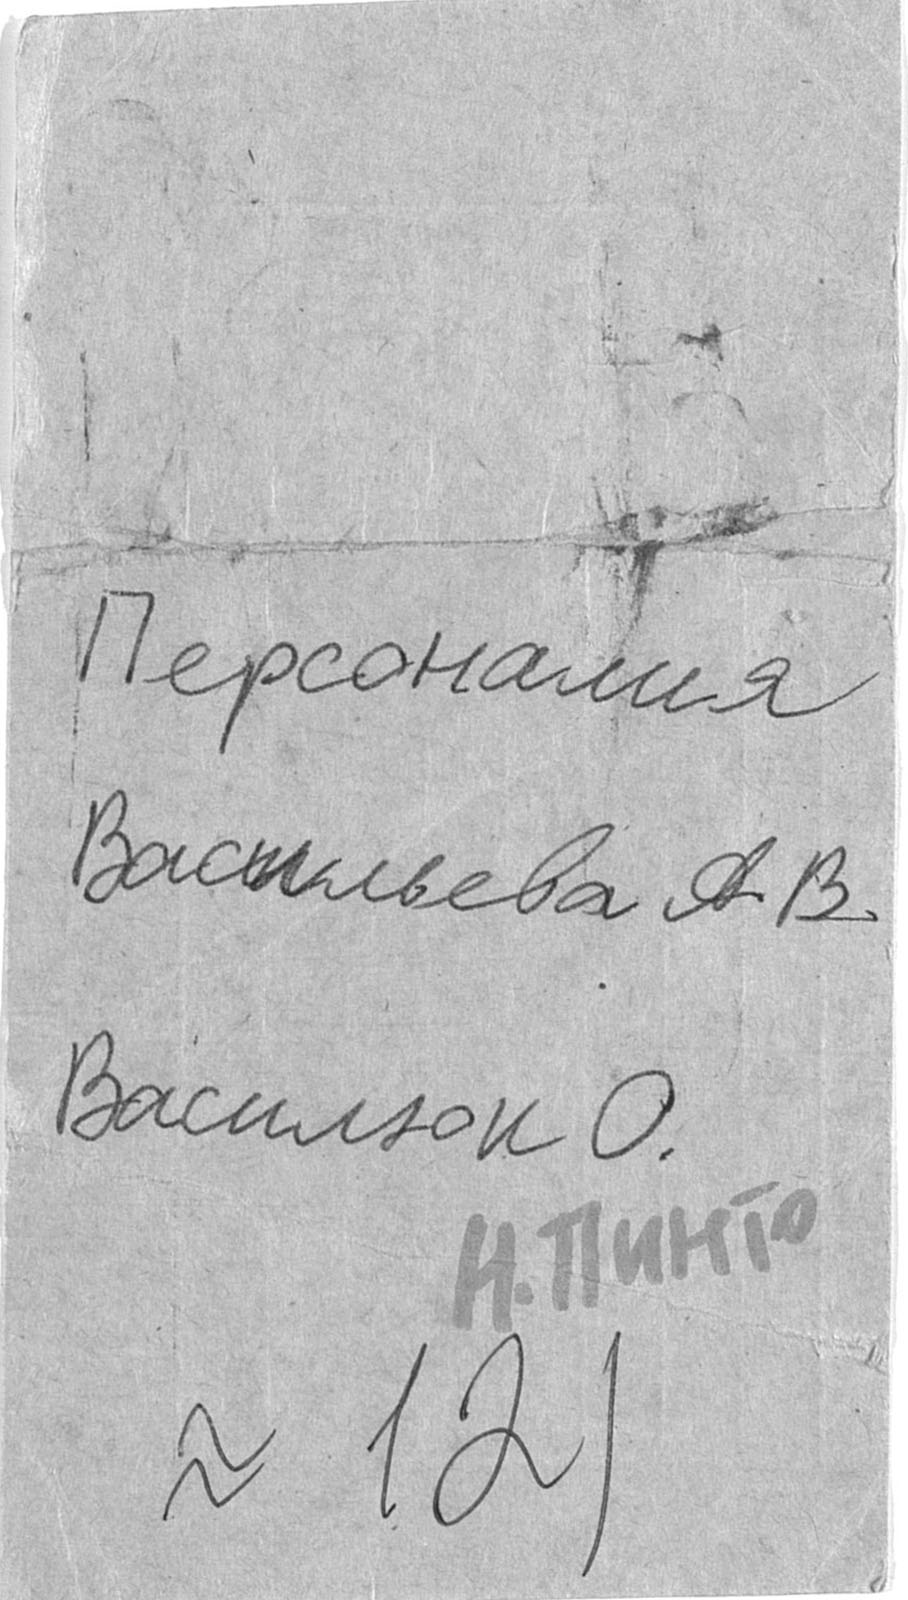 Персоналия
Васильева А. В.
Василюк О.
Н. Пинто
≈ 121